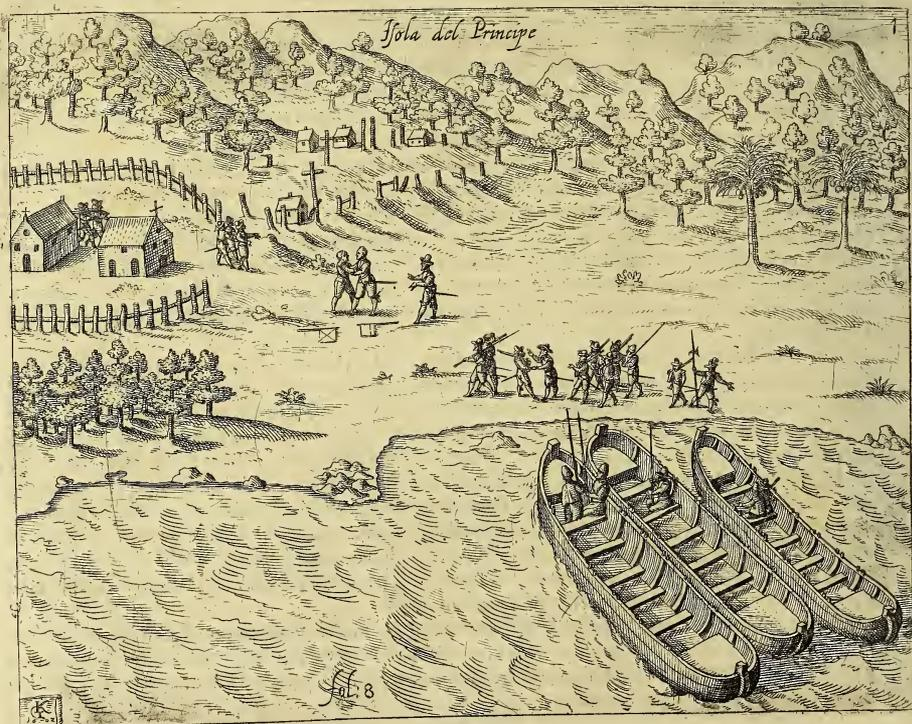 Isola del Principe
1
fol: 8